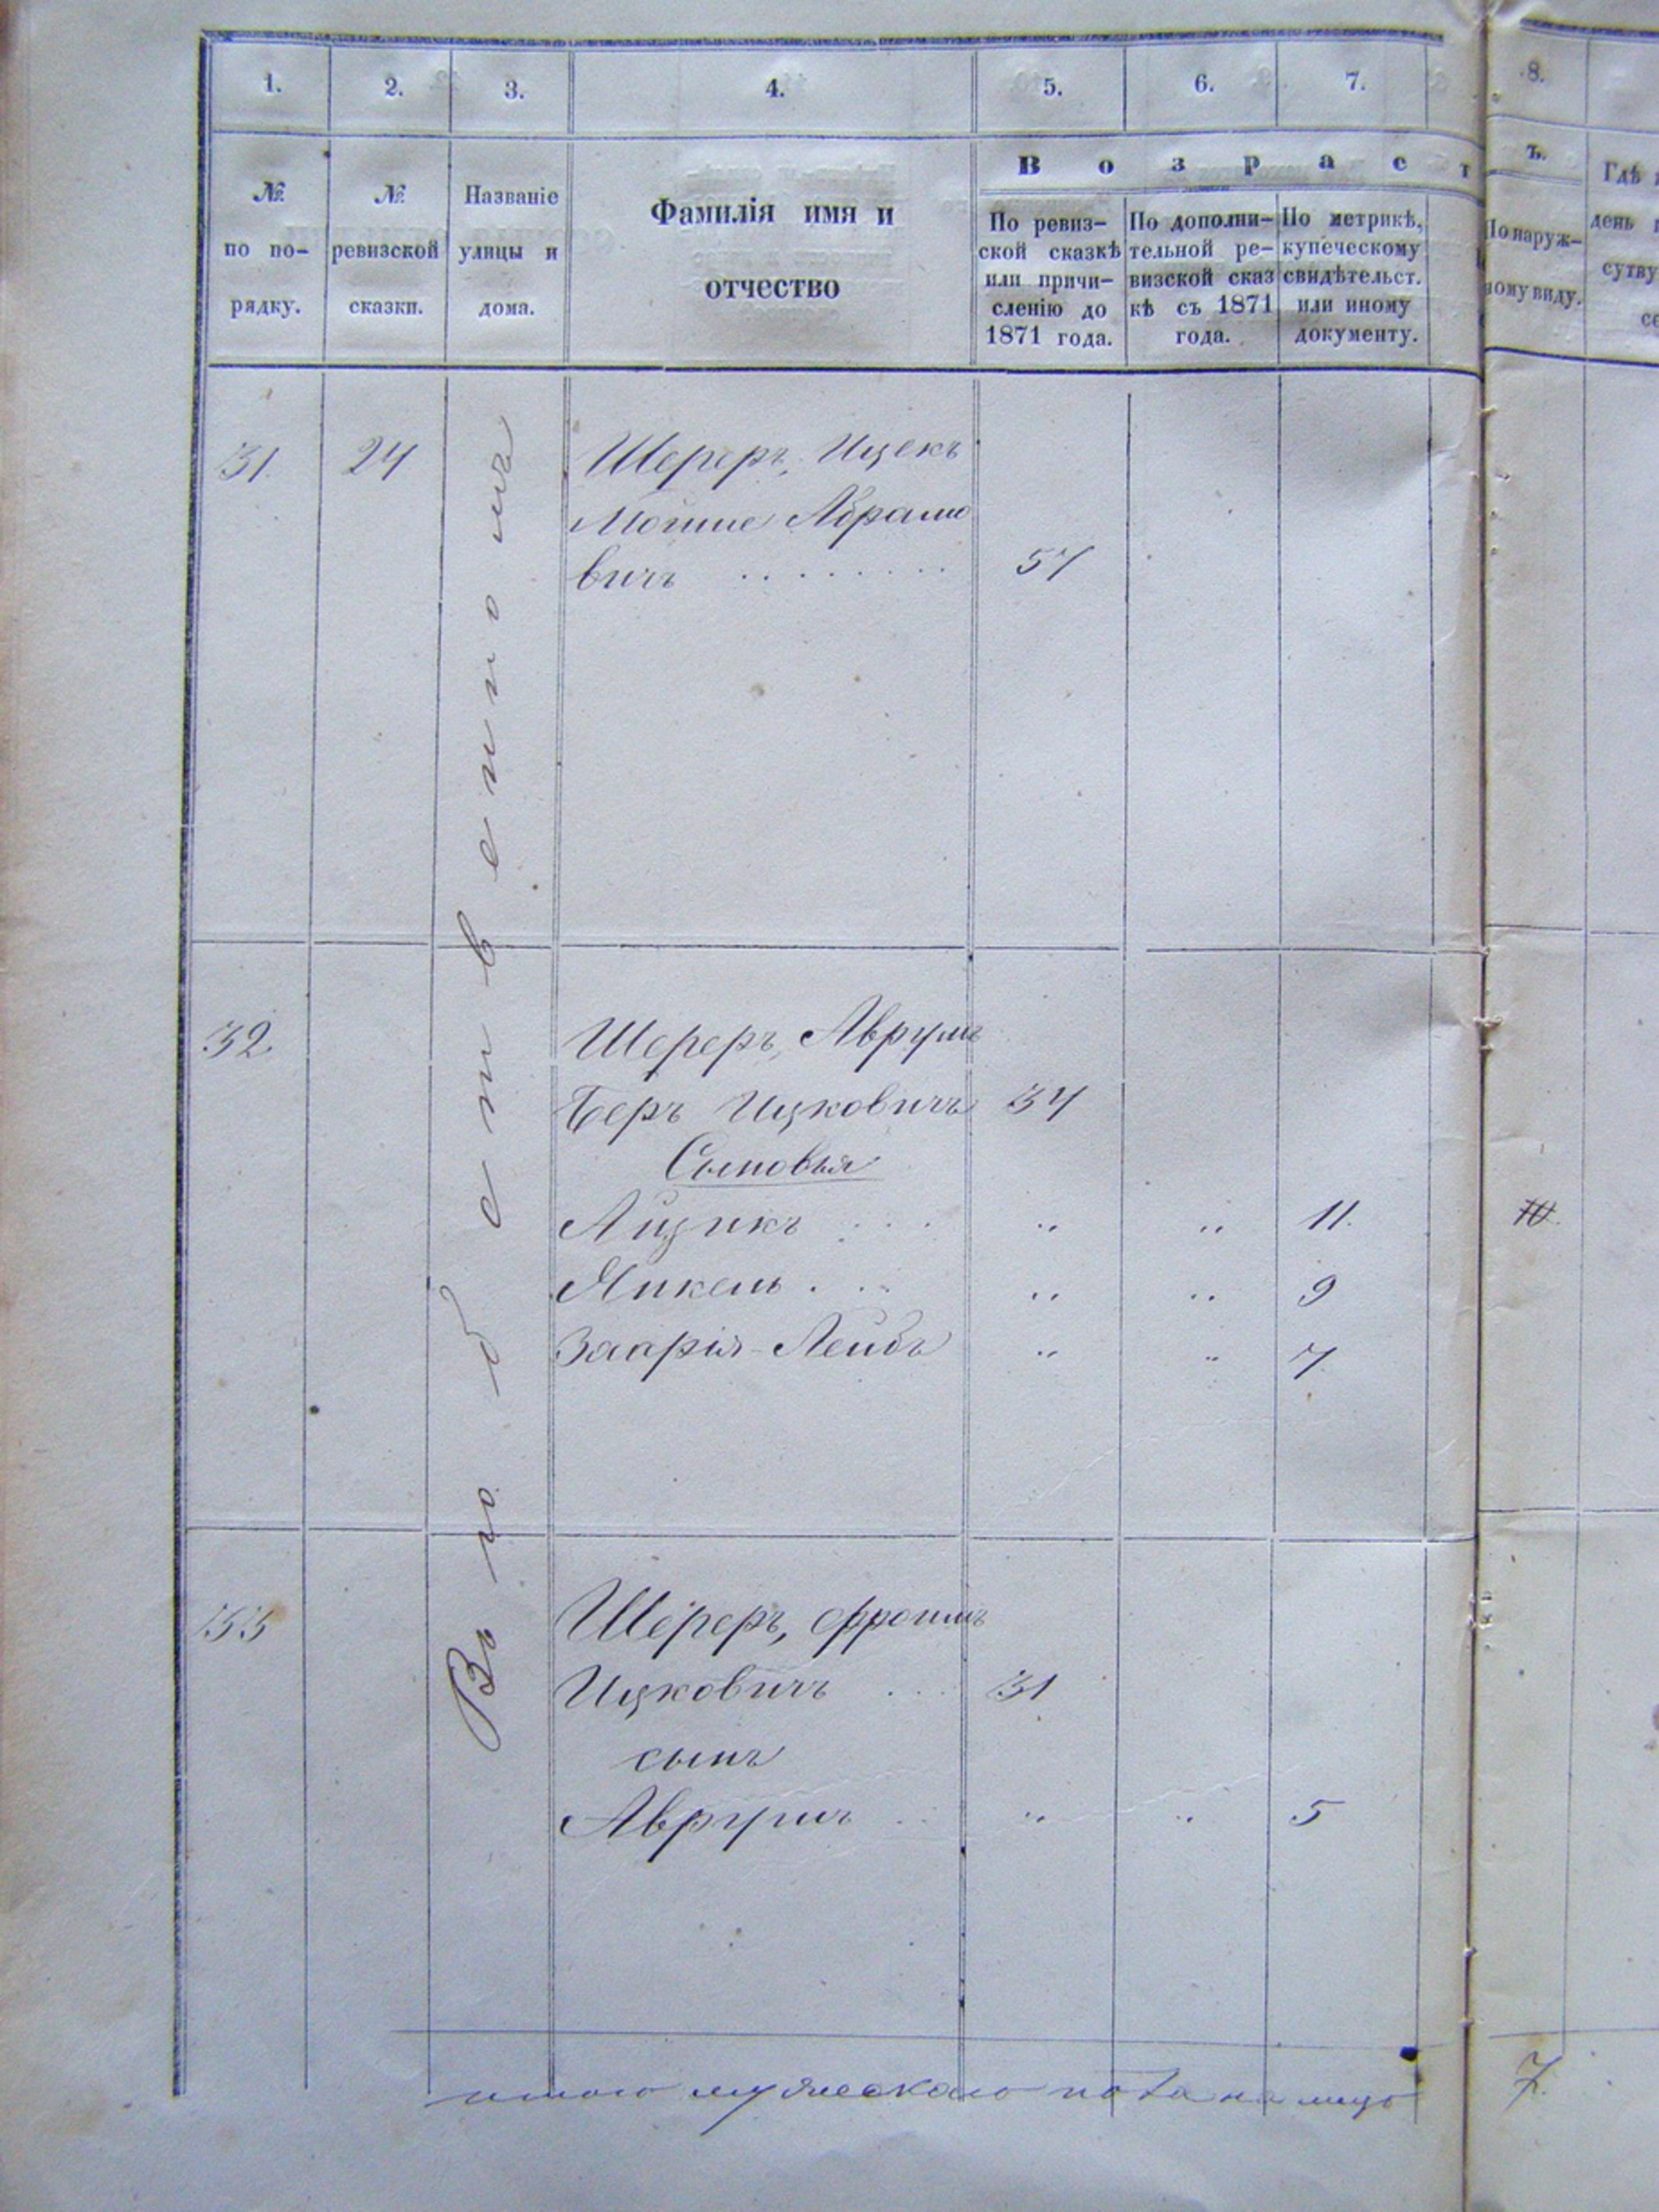 1. 2. 3. 4. 5. 6. 7. 8.
В о з р а с т ъ.
№ по по-рядку.
№ ревизской сказки.
Названіе улицы и дома.
Фамилія имя и
отчество
По ревиз-
ской сказкѣ
или причи-
сленію до
1871 года.
По дополни-
тельной ре-
визской сказ
кѣ съ 1871
года.
По метрикѣ,
купеческому
свидѣтельст.
или иному
документу.
По наруж-
ному виду.
Гдѣ
день
сутву
Въ собственномъ
31. 24 Шереръ, Ицекъ
Мошше Абрамо
вичъ 57
32 Шереръ, Аврумъ
Беръ Ицковичъ 34
Сыновья
Айзикъ .. .. 11. 10.
Янкель .. .. 9
Заарія-Лейбъ .. .. 7
33 Шереръ, Фроимъ
Ицковичъ 31
сынъ
Аврумъ .. .. 5
итого мужескаго пола на лицо 7.